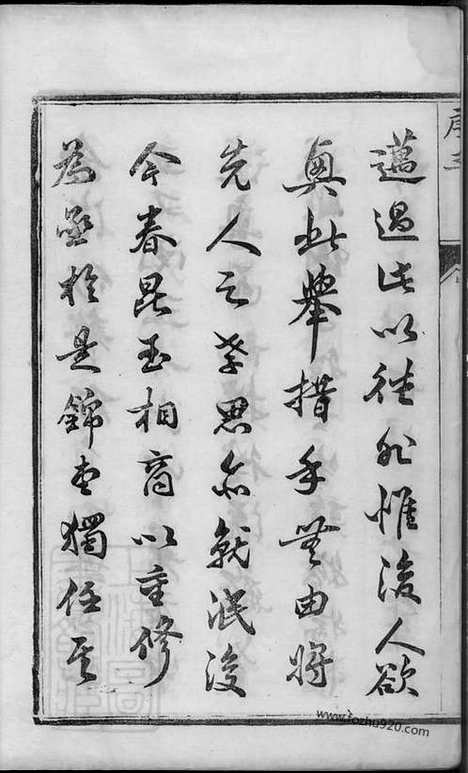 邁過此以往非惟後人欲
興此舉措手無由將
先人之孝思亦就泯沒
今春昆玉相商以重修
為亟於是錦堂獨任其
序
www.fozhu920.com